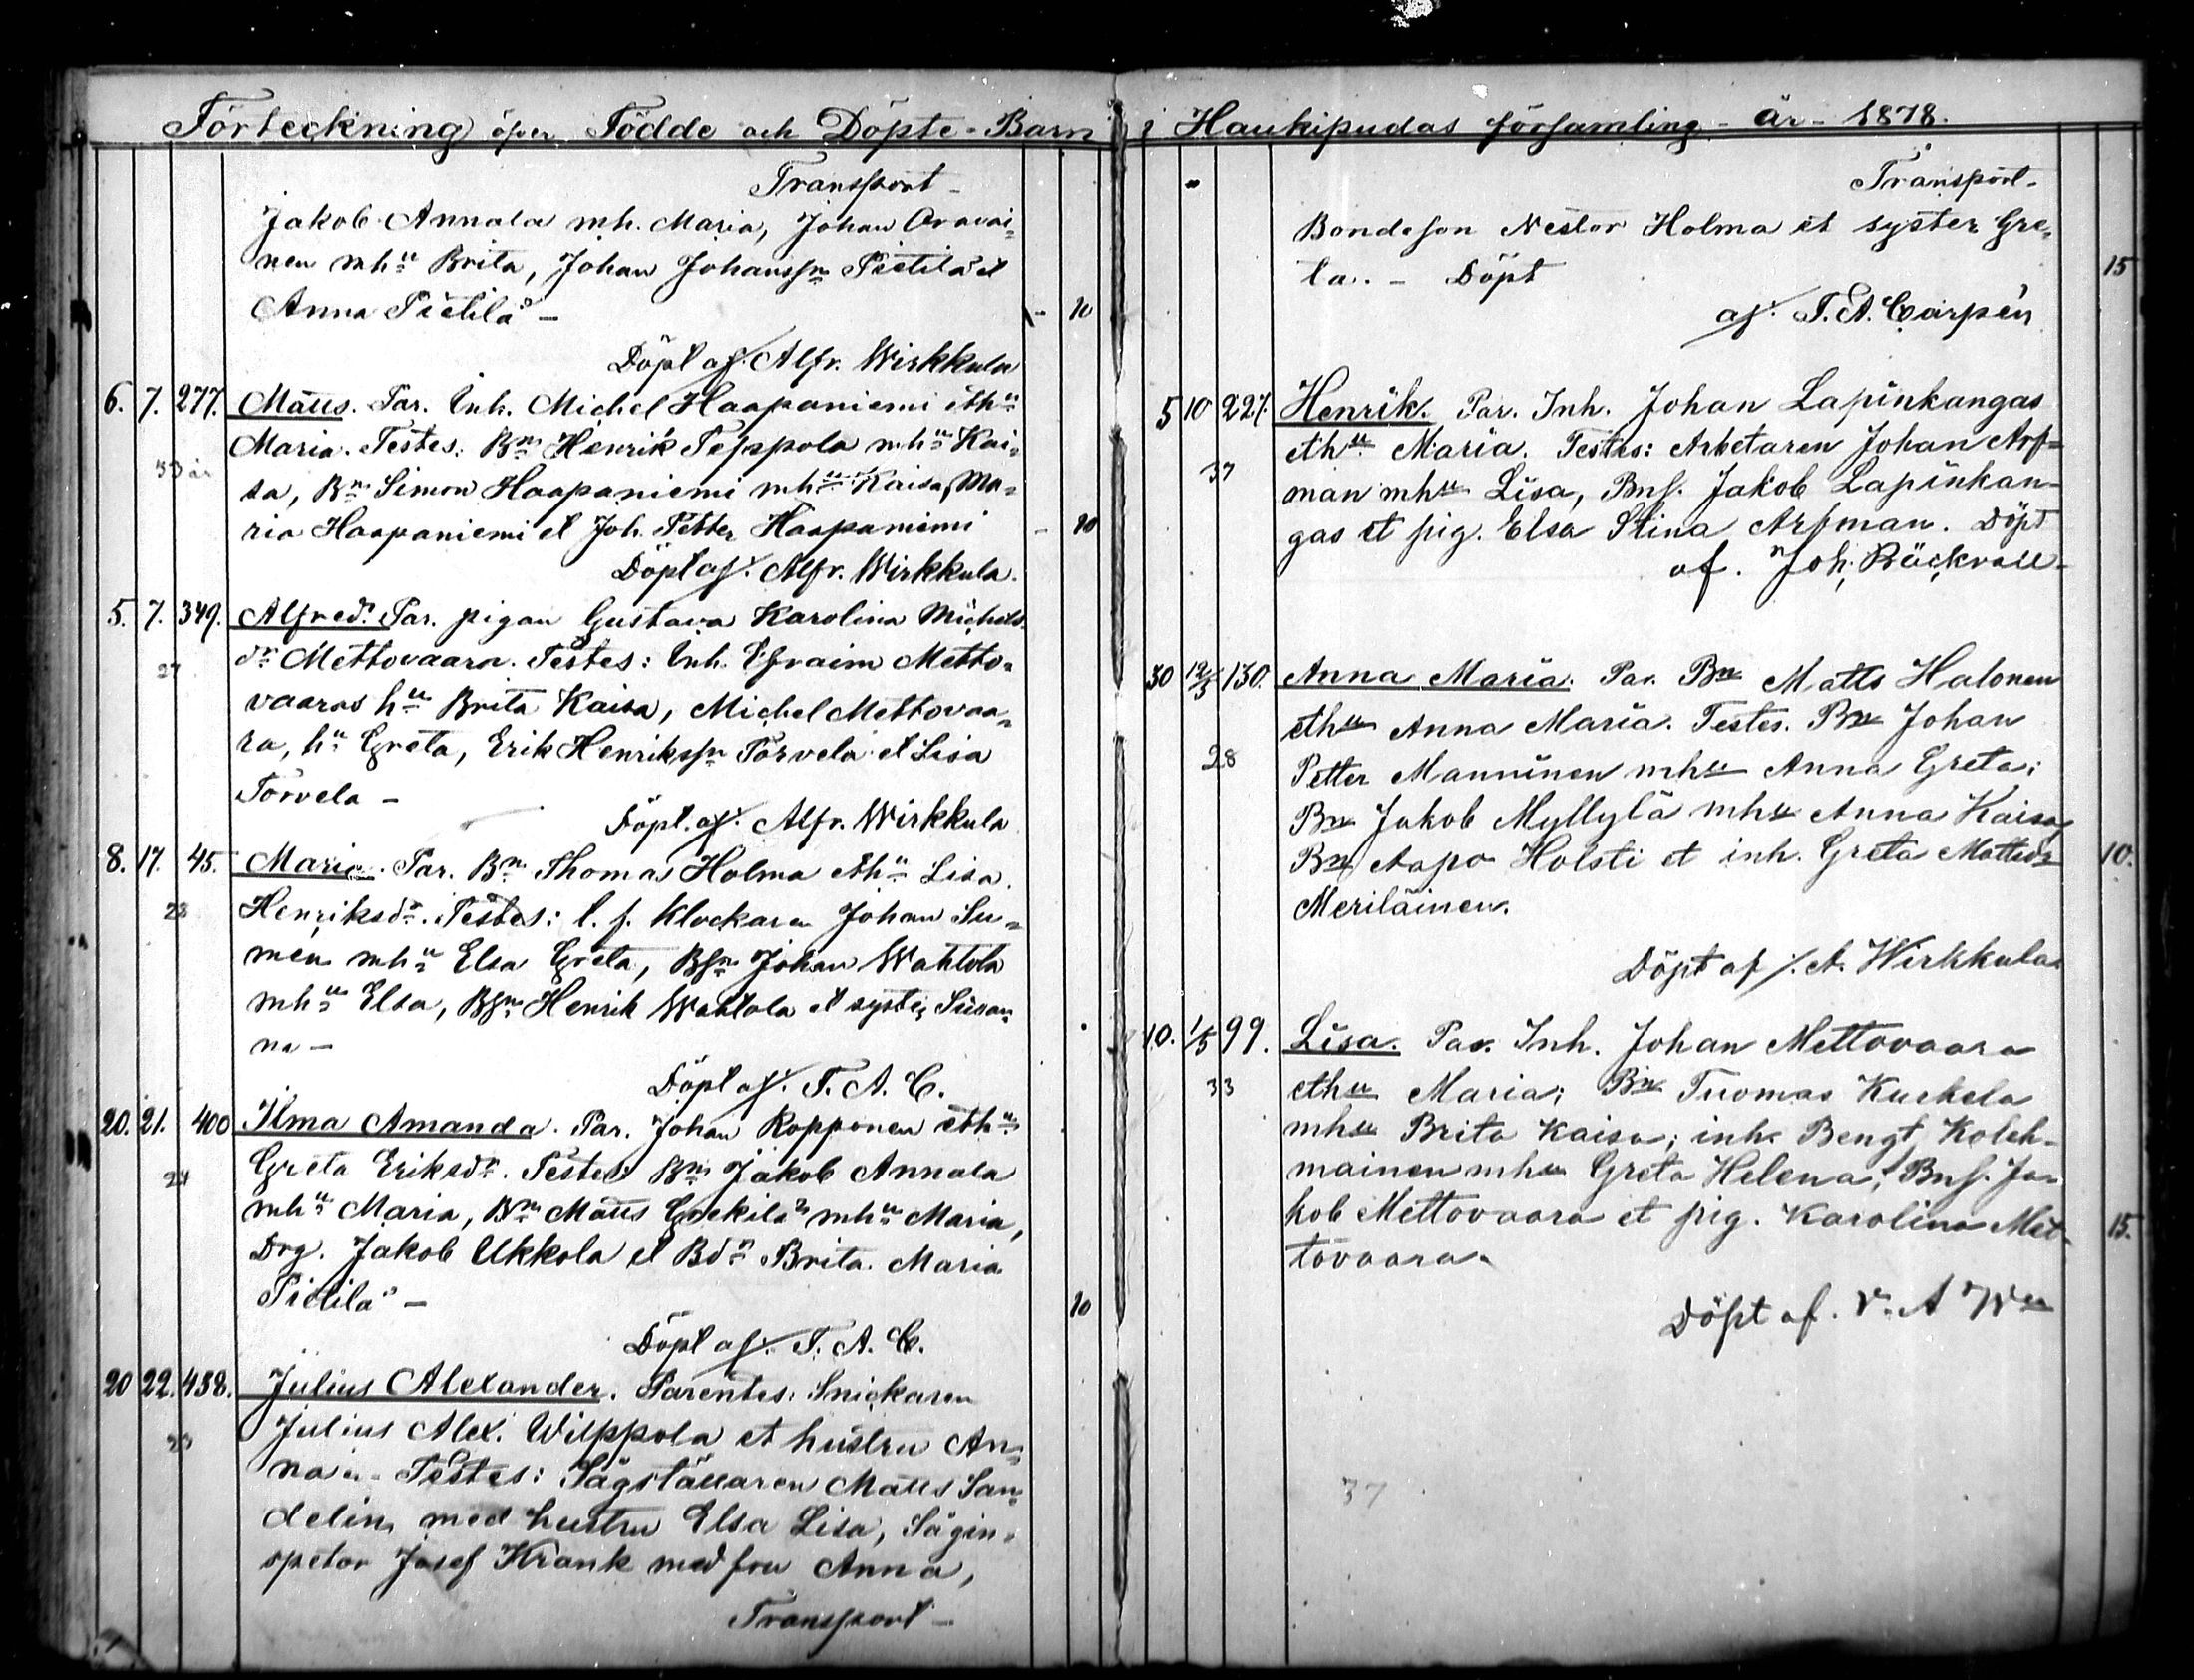 Förteckning öfver Födde och Döpte-Barn i Haukipudas församling - år - 1878.
Transport -
Jakob Annala mh. Maria, Johan Oravai=
nen mhu Brita, Johan Johanssn Pietilä et
Anna Pietilä - - 10
Döpt af. Alfr. Wirkkula
6. 7. 277. Matts. Par. Inh. Michel Haapaniemi ethu
Maria. Testes: Bn Henrik Teppola mhu Kai=
33 år
sa, Bn Simon Haapaniemi mhu Kaisa, Ma=
ria Haapaniemi et Joh. Petter Haapaniemi - 10
Döpt af. Alfr. Wirkkula.
5. 7. 349. Alfred. Par. pigan Gustava Karolina Michels
27 dr Mettovaara. Testes: Inh. Efraim Metto=
vaaras hu Brita Kaisa, Michel Mettovaa=
ra, hu Greta, Erik Henrikssn Törvelä et Lisa
Törvelä -
Döpt. af. Alfr. Wirkkula
8. 17. 45. Maria. Par. Bn Thomas Holma ethu Lisa
28 Henriksdr. Testes: t. f. Klockaren Johan Su=
men mhu Elsa Greta, Bsn Johan Wahtola
mhu Elsa, Bsn Henrik Wahtola et syster Susan=
na -
Döpt af. T. A. C.
20. 21. 400 Ilma Amanda. Par. Johan Ropponen ethu
24 Greta Eriksdr. Testes: Bn Jakob Annala
mhu Maria, Bn Matts mhu Maria,
Drg. Jakob Ukkola et Bdr Brita Maria
Pietilä - 10
Döpt af. T. A. C.
20 22. 438. Julius Alexander. Parentes: Snickaren
Julius Alex. Wilppola et hustru An=
na. Testes: Sågställaren Matts San=
delin, med hustru Elsa Lisa, Sågin=
spetor Josef Krank med fru Anna,
Transport -
Transport -
Bondeson Nestor Holma et syster Gre=
ta. - Döpt 15
af. T. A. Carpén
5 10 227. Henrik. Par. Inh. Johan Lapinkangas
ethu Maria. Testes: Arbetaren Johan Arf=
37
man mhu Lisa, Bns. Jakob Lapinkan-
gas et pig. Elsa Stina Arfman. Döpt
af. Joh. Bäckvall-
30 12/3 130. Anna Maria. Par. Bn Matts Halonen
ethu Anna Maria. Testes. Bn Johan
28 Petter Manninen mhu Anna Greta;
Bn Jakob Myllylä mhu Anna Kaisa,
Bn Aapo Holsti et inh. Greta Mattsdr 10.
Meriläinen.
Döpt af /. A. Wirkkula
10. 1/5 99. Lisa. Par. Inh. Johan Mettovaara
33 ethu Maria; Bn Tuomas Kurkela
mhu Brita Kaisa; inh. Bengt Koleh-
mainen mhu Greta Helena; Bns. Ja-
kob Mettovaara et pig. Karolina Met- 15.
tovaara.
Döpt af. V. A Wa
37